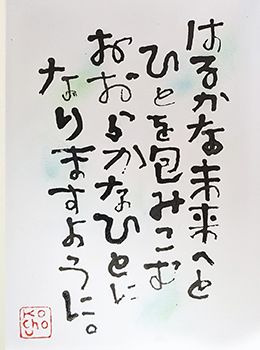 はるかな未来へと
ひとを包みこむ
おおらかなひとに
なりますように。
Ko
cho